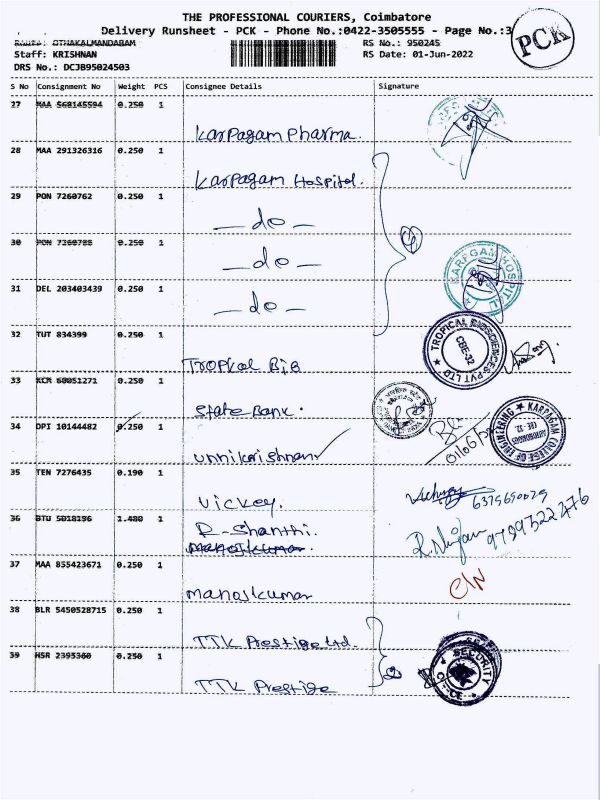 THE PROFESSIONAL COURIERS, Coimbatore
Delivery Runsheet - PCK - Phone No.:0422-3505555 - Page No.:3
PCK
Route: OTHAKALMANDABAM
RS No.: 950245
Staff: KRISHNAN
RS Date: 01-Jun-2022
DRS No.: DCJB95024503
S No Consignment No Weight PCS Consignee Details Signature
27 MAA 568145594 0.250 1
Karpagam Pharma.
28 MAA 291326316 0.250 1
Karpagam Hospital.
29 PON 7260762 0.250 1
— do —
30 PON 7260788 0.250 1
— do —
KARPAGAM HOSPITAL
31 DEL 203403439 0.250 1
— do —
32 TUT 834399 0.250 1
TROPICAL BIOSCIENCES PVT LTD
CBE-32
Tropical Bio
33 KCM 68051271 0.250 1
State Bank.
34 OPI 10144482 0.250 1
01/06/22
KARPAGAM COLLEGE OF ENGINEERING
unnikrishnan
35 TEN 7276435 0.190 1
Vickey.
6379690029
36 BTU 5018196 1.480 1
R-Shanthi.
manojkumar.
9789322276
37 MAA 855423671 0.250 1
manojkumar
38 BLR 5450528715 0.250 1
TTK Prestige Ltd.
SECURITY
OFFICE
39 HSR 2395360 0.250 1
TTK Prestige